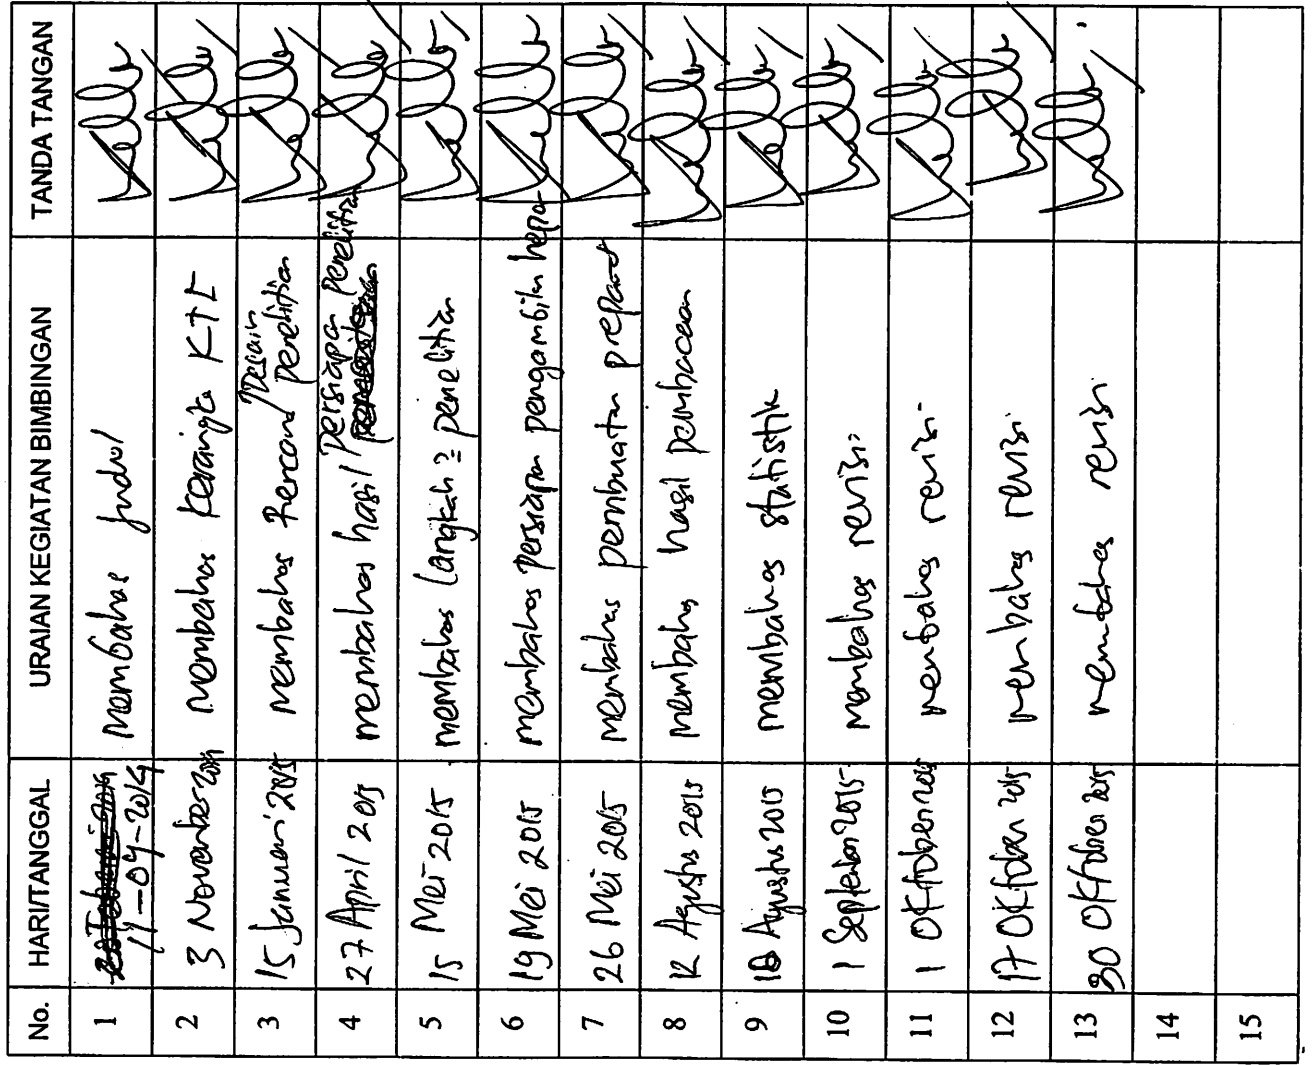 No. HARI/TANGGAL URAIAN KEGIATAN BIMBINGAN TANDA TANGAN
1 11-09-2014 membahas judul
2 3 November 2014 membahas kerangka KTI
3 15 Januari 2015 membahas Rencana/Desain penelitian
4 27 April 2015 membahas hasil/persiapan penelitian
5 15 Mei 2015 membahas langkah2 penelitian
6 19 Mei 2015 membahas persiapan pengambiln hepar
7 26 Mei 2015 membahas pembuatan preparat
8 12 Agustus 2015 membahas hasil pembacaan
9 Agustus 2015 membahas statistik
10 1 September 2015 membahas revisi
11 1 Oktober 2015 membahas revisi
12 17 Oktober 2015 membahas revisi
13 30 Oktober 2015 membahas revisi
14
15